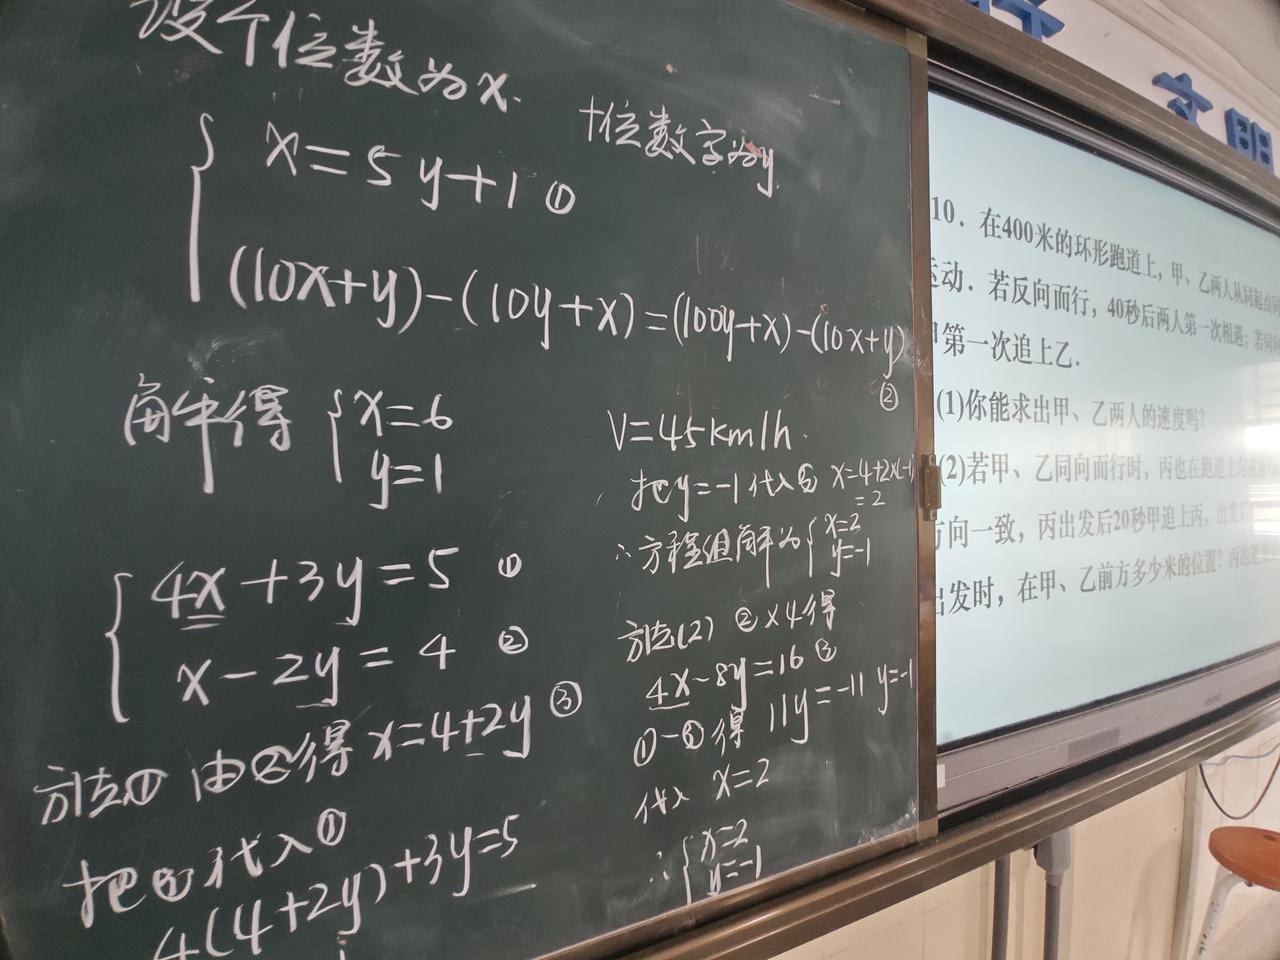 设个位数为x.
十位数字为y
x=5y+1 ①
(10x+y)-(10y+x)=(100y+x)-(10x+y)
②
解得 {x=6
y=1
4x+3y=5 ①
x-2y=4 ②
方法① 由②得 x=4+2y ③
把③代入①
4(4+2y)+3y=5
V=45km/h.
把y=-1代入③ x=4+2×(-1)
=2
∴方程组解为{x=2
y=-1
方法(2) ②×4得
4x-8y=16 ③
①-③得 11y=-11 y=-1
代入 x=2
∴{x=2
y=-1
文明
10. 在400米的环形跑道上，甲、乙两人从同起点
运动. 若反向而行，40秒后两人第一次相遇；若同
甲第一次追上乙.
(1)你能求出甲、乙两人的速度吗?
(2)若甲、乙同向而行时，丙也在跑道上
方向一致，丙出发后20秒甲追上丙，出发
出发时，在甲、乙前方多少米的位置? 丙的